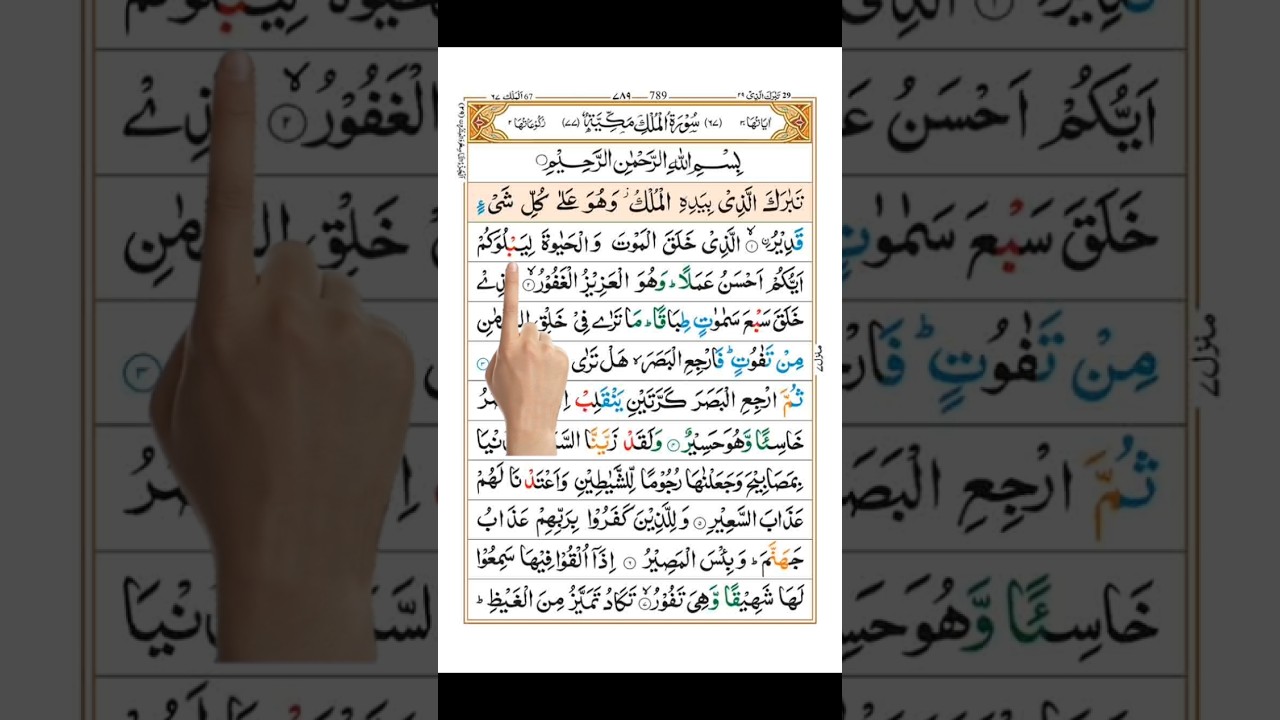 29 تَبٰرَكَ الَّذِیْ ٢٩ 789 ٧٨٩ 67 اَلْمُلْك ٦٧
اٰيَاتُهَا ٣٠ (٦٧) سُوْرَةُ الْمُلْكِ مَكِّيَّةٌ (٧٧) رُكُوْعَاتُهَا ٢
بِسْمِ اللّٰهِ الرَّحْمٰنِ الرَّحِيْمِ
تَبٰرَكَ الَّذِیْ بِيَدِهِ الْمُلْكُ ز وَهُوَ عَلٰی كُلِّ شَیْءٍ
قَدِيْرُ ۙ ١ الَّذِیْ خَلَقَ الْمَوْتَ وَ الْحَيٰوةَ لِيَبْلُوَكُمْ
اَيُّكُمْ اَحْسَنُ عَمَلًا ؕ وَهُوَ الْعَزِيْزُ الْغَفُوْرُ ۙ ٢
خَلَقَ سَبْعَ سَمٰوٰتٍ طِبَاقًا ؕ مَا تَرٰی فِیْ خَلْقِ
مِنْ تَفٰوُتٍ ؕ فَارْجِعِ الْبَصَرَ ۙ هَلْ تَرٰی ٣
ثُمَّ ارْجِعِ الْبَصَرَ كَرَّتَيْنِ يَنْقَلِبْ
خَاسِئًا وَّهُوَ حَسِيْرٌ ٤ وَلَقَدْ زَيَّنَّا
بِمَصَابِيْحَ وَجَعَلْنٰهَا رُجُوْمًا لِّلشَّيٰطِيْنِ وَاَعْتَدْنَا لَهُمْ
عَذَابَ السَّعِيْرِ ٥ وَ لِلَّذِيْنَ كَفَرُوْا بِرَبِّهِمْ عَذَابُ
جَهَنَّمَ ؕ وَ بِئْسَ الْمَصِيْرُ ٦ اِذَاۤ اُلْقُوْا فِيْهَا سَمِعُوْا
لَهَا شَهِيْقًا وَّهِیَ تَفُوْرُ ۙ ٧ تَكَادُ تَمَيَّزُ مِنَ الْغَيْظِ ؕ
منزل ٧